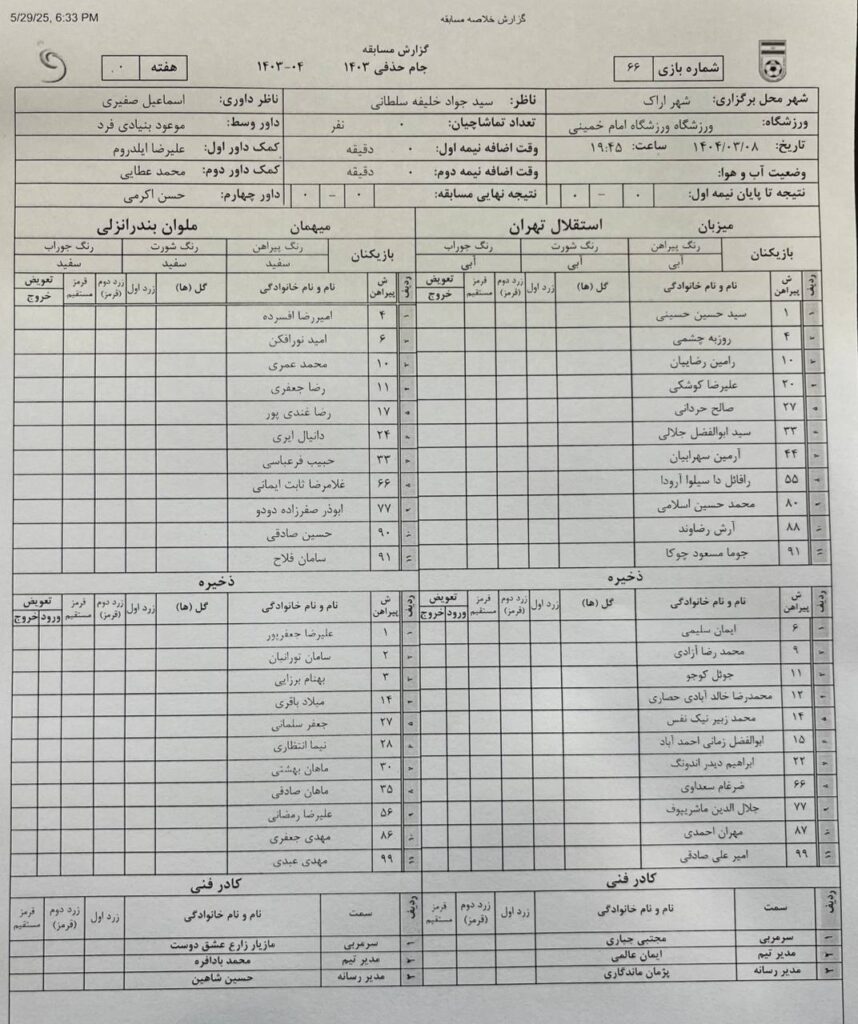 5/29/25, 6:33 PM
گزارش خلاصه مسابقه
گزارش مسابقه
شماره بازی ۶۶
جام حذفی ۱۴۰۳ ۱۴۰۳-۰۴
هفته ۰
شهر محل برگزاری: شهر اراک
ناظر: سید جواد خلیفه سلطانی
ناظر داوری: اسماعیل صفیری
ورزشگاه: ورزشگاه ورزشگاه امام خمینی
تعداد تماشاچیان: ۰ نفر
داور وسط: موعود بنیادی فرد
تاریخ: ۱۴۰۴/۰۳/۰۸ ساعت: ۱۹:۴۵
وقت اضافه نیمه اول: ۰ دقیقه
کمک داور اول: علیرضا ایلدروم
وضعیت آب و هوا:
وقت اضافه نیمه دوم: ۰ دقیقه
کمک داور دوم: محمد عطایی
نتیجه تا پایان نیمه اول: ۰ - ۰
نتیجه نهایی مسابقه: ۰ - ۰
داور چهارم: حسن اکرمی
میزبان استقلال تهران
بازیکنان رنگ پیراهن رنگ شورت رنگ جوراب
آبی آبی آبی
ردیف ش پیراهن نام و نام خانوادگی گل (ها) زرد اول زرد دوم (قرمز) قرمز مستقیم تعویض خروج
۱ ۱ سید حسین حسینی
۲ ۴ روزبه چشمی
۳ ۱۰ رامین رضاییان
۴ ۲۰ علیرضا کوشکی
۵ ۲۷ صالح حردانی
۶ ۳۳ سید ابوالفضل جلالی
۷ ۴۴ آرمین سهرابیان
۸ ۵۵ رافائل دا سیلوا آرودا
۹ ۸۰ محمد حسین اسلامی
۱۰ ۸۸ آرش رضاوند
۱۱ ۹۱ جوما مسعود چوکا
ذخیره
ردیف ش پیراهن نام و نام خانوادگی گل (ها) زرد اول زرد دوم (قرمز) قرمز مستقیم تعویض ورود خروج
۱ ۶ ایمان سلیمی
۲ ۹ محمد رضا آزادی
۳ ۱۱ جوئل کوجو
۴ ۱۲ محمدرضا خالد آبادی حصاری
۵ ۱۴ محمد زبیر نیک نفس
۶ ۱۵ ابوالفضل زمانی احمد آباد
۷ ۲۲ ابراهیم دیدر اندونگ
۸ ۶۶ ضرغام سعداوی
۹ ۷۷ جلال الدین ماشریپوف
۱۰ ۸۷ مهران احمدی
۱۱ ۹۹ امیر علی صادقی
کادر فنی
ردیف سمت نام و نام خانوادگی زرد اول زرد دوم (قرمز) قرمز مستقیم
۱ سرمربی مجتبی جباری
۲ مدیر تیم ایمان عالمی
۳ مدیر رسانه پژمان ماندگاری
میهمان ملوان بندرانزلی
بازیکنان رنگ پیراهن رنگ شورت رنگ جوراب
سفید سفید سفید
ردیف ش پیراهن نام و نام خانوادگی گل (ها) زرد اول زرد دوم (قرمز) قرمز مستقیم تعویض خروج
۱ ۴ امیررضا افسرده
۲ ۶ امید نورافکن
۳ ۱۰ محمد عمری
۴ ۱۱ رضا جعفری
۵ ۱۷ رضا غندی پور
۶ ۲۴ دانیال ایری
۷ ۳۳ حبیب فرعباسی
۸ ۶۶ غلامرضا ثابت ایمانی
۹ ۷۷ ابوذر صفرزاده دودو
۱۰ ۹۰ حسین صادقی
۱۱ ۹۱ سامان فلاح
ذخیره
ردیف ش پیراهن نام و نام خانوادگی گل (ها) زرد اول زرد دوم (قرمز) قرمز مستقیم تعویض ورود خروج
۱ ۱ علیرضا جعفرپور
۲ ۲ سامان نورانیان
۳ ۳ بهنام برزایی
۴ ۱۴ میلاد باقری
۵ ۲۷ جعفر سلمانی
۶ ۲۸ نیما انتظاری
۷ ۳۰ ماهان بهشتی
۸ ۳۵ ماهان صادقی
۹ ۵۶ علیرضا رمضانی
۱۰ ۸۶ مهدی جعفری
۱۱ ۹۹ مهدی عبدی
کادر فنی
ردیف سمت نام و نام خانوادگی زرد اول زرد دوم (قرمز) قرمز مستقیم
۱ سرمربی مازیار زارع عشق دوست
۲ مدیر تیم محمد بادافره
۳ مدیر رسانه حسین شاهین